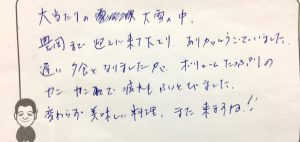 大当たりの 大雪の中、
豊岡まで迎えに来て下さり ありがとうございました。
遅い夕食となりましたが、ボリュームたっぷりの
カニ で疲れもふっとびました。
変わらず美味しい料理、また来ますね!!